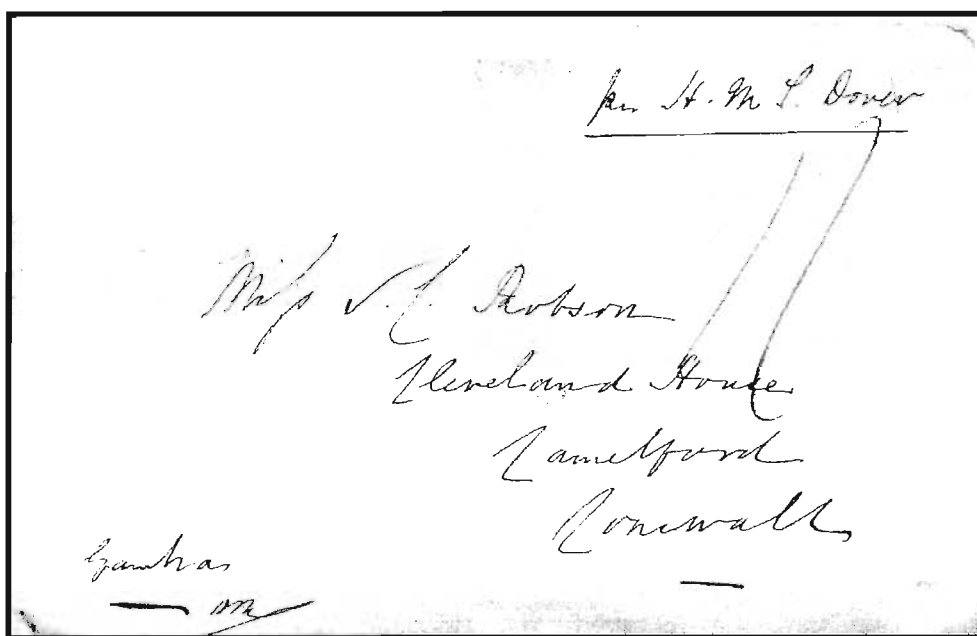 per H. M. S. Dover
Miss S. C. Robson
Cleveland House
Camelford
Cornwall
Gambia